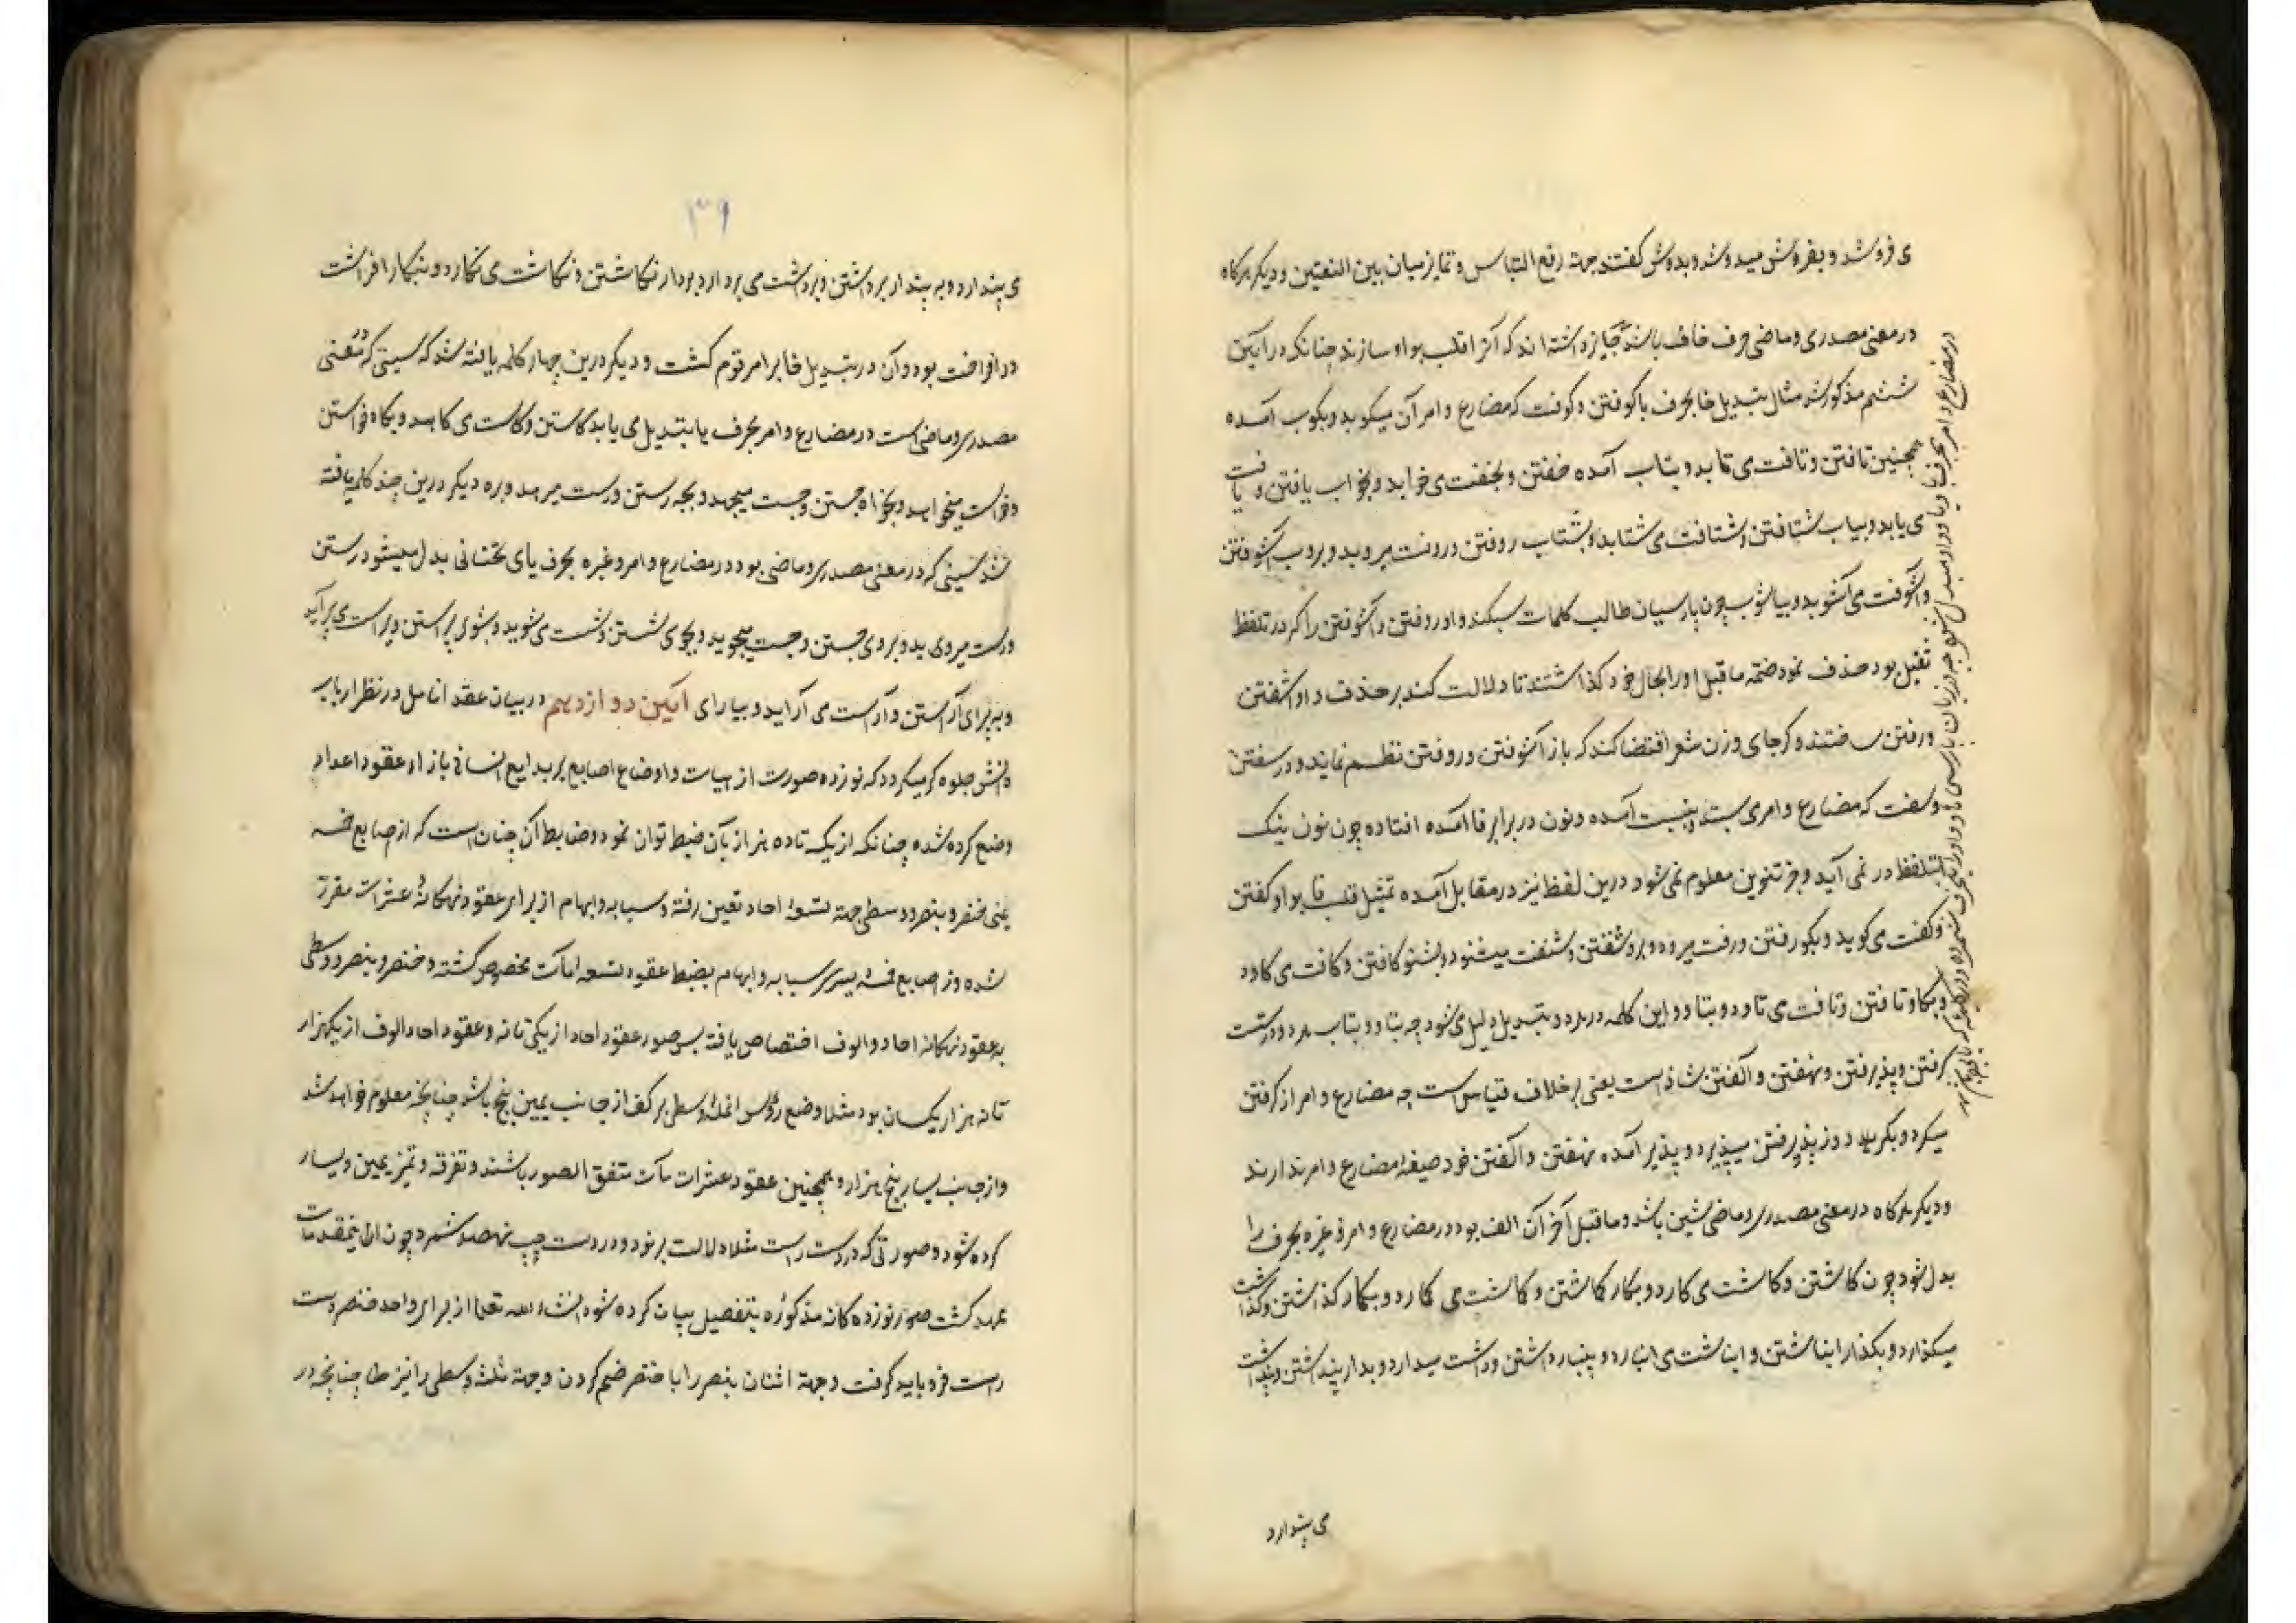 ی فروشد و بفروش میدوشد و بدوش گفتند جهة رفع التباس و تمایز میان بین اللغتین و دیگر هرگاه
در معنی مصدری و ماضی حرف فا باشد جایز داشته اند که آنرا قلب بواو سازند چنانکه در آیین
ششم مذکور شد مثال تبدیل فا بحرف با کوفتن و کوفت که مضارع و امر آن میکوبد و بکوب آمده
همچنین تافتن و تافت می تابد و بتاب آمده خفتن و بخفت می خوابد و بخواب یافتن و یافت
می یابد و بیاب شتافتن و شتافت می شتابد و بشتاب روفتن و روفت میروبد و بروب آشوفتن
و آشوفت می آشوبد و بیاشوب چون پارسیان طالب کلمات سبکند واو روفتن و آشوفتن را که در تلفظ
ثقیل بود حذف نمود ضمّه ماقبل او را بحال خود گذاشتند تا دلالت کند بر حذف واو اشفتن
و رفتن ساختند و گر جای وزن شعر اقتضا کند که باز آشوفتن و روفتن نظم نمایند و در سفتن
و سفت که مضارع و امر می سنبد و بسنب آمده و نون در برابر فا آمده افتاده چون نون نیک
بتلفظ در نمی آید و جز تنوین معلوم نمی شود درین لفظ نیز در مقابل آمده تمثیل قلب فا بواو گفتن
و گفت می گوید و بگو رفتن و رفت میرود و برو شنفتن و شنفت میشنود و بشنو کافتن و کافت می کاود
و بکاو تافتن و تافت می تاود و بتاو و این کلمه در هر دو تبدیل دلیل می شود چه بتاو و بتاب هر دو درست
گرفتن و پذیرفتن و نهفتن و آلفتن شاذ است یعنی بر خلاف قیاس است چه مضارع و امر از گرفتن
میگرد و بگیر بود و از پذیرفتن میپذیرد و پذیر آمده نهفتن و آلفتن خود صیغه مضارع و امر ندارند
و دیگر هرگاه در معنی مصدری و ماضی شین باشد و ماقبل آخر آن الف بود در مضارع و امر و غیره بحرف را
بدل شود چون کاشتن و کاشت می کارد و بکار گماشتن و گماشت می گمارد و بگمار گذاشتن و گذاشت
میگذارد و بگذار انباشتن و انباشت می انبارد و بینبار داشتن و داشت میدارد و بدار پنداشتن و پنداشت
می پندارد
۳۹
ی پندارد و به پندار برداشتن و برداشت می بردارد بردار نگاشتن و نگاشت می نگارد و بنگار افراشت
در افراخت بود و آن در تبدیل خا بر امر قوم گشت و دیگر درین چهار کلمه یافته شد که سینی که در معنی
مصدری و ماضی است در مضارع و امر بحرف ها تبدیل می یابد کاستن و کاست می کاهد و بکاه خواستن
و خواست میخواهد و بخواه جستن و جست میجهد و بجه رستن و رست میرهد و بره دیگر درین چند کلمه یافته
شد سینی که در معنی مصدری و ماضی بود در مضارع و امر و غیره بحرف یای تحتانی بدل میشود رستن
و رست میروید و بروی جستن و جست میجوید و بجوی شستن و شست می شوید و بشوی پیراستن و پیراست می پیراید
و به پیرای آراستن و آراست می آراید و بیارای آیین دوازدهم در بیان عقد انامل در نظر ارباب
دانش جلوه گر میگردد که نوزده صورت از هیات و اوضاع اصابع بر بدایع انسانی باز او عقود اعداد
وضع کرده شده چنانکه از یک تا ده هزار بآن ضبط توان نمود و ضابط آن چنان است که از اصابع خمسه
یمنی خنصر و بنصر و وسطی جهة تسعهٔ احاد تعین رفته و سبابه و ابهام از برای عقود نهگانهٔ عشرات مقرر
شده و از اصابع خمسهٔ یسری سبابه و ابهام بضبط عقود تسعه مآت مخصوص گشته و خنصر و بنصر و وسطی
به عقود نهگانه احاد و الوف اختصاص یافته پس صور عقود احاد از یکی تا نه و عقود احاد الوف از یکهزار
تا نه هزار یکسان بود مثلا وضع رؤس انملهٔ وسطی بر کف از جانب یمین پنج باشد چنانچه معلوم خواهد شد
و از جانب یسار پنج هزار و همچنین عقود عشرات مآت متفق الصور باشند و تفرقه و تمیز یمین و یسار
کرده شود و صورتی که در دست راست مثلا دلالت بر نود و در دست چپ نهصد شمرد چون این مقدمات
ممهد گشت صور نوزده گانه مذکوره بتفصیل بیان کرده شود انشاء الله تعالی از برای واحد خنصر دست
راست فرو باید گرفت و جهة اثنان بنصر را با خنصر ضم کردن و جهة ثلثه وسطی را نیز ضم چنانچه در